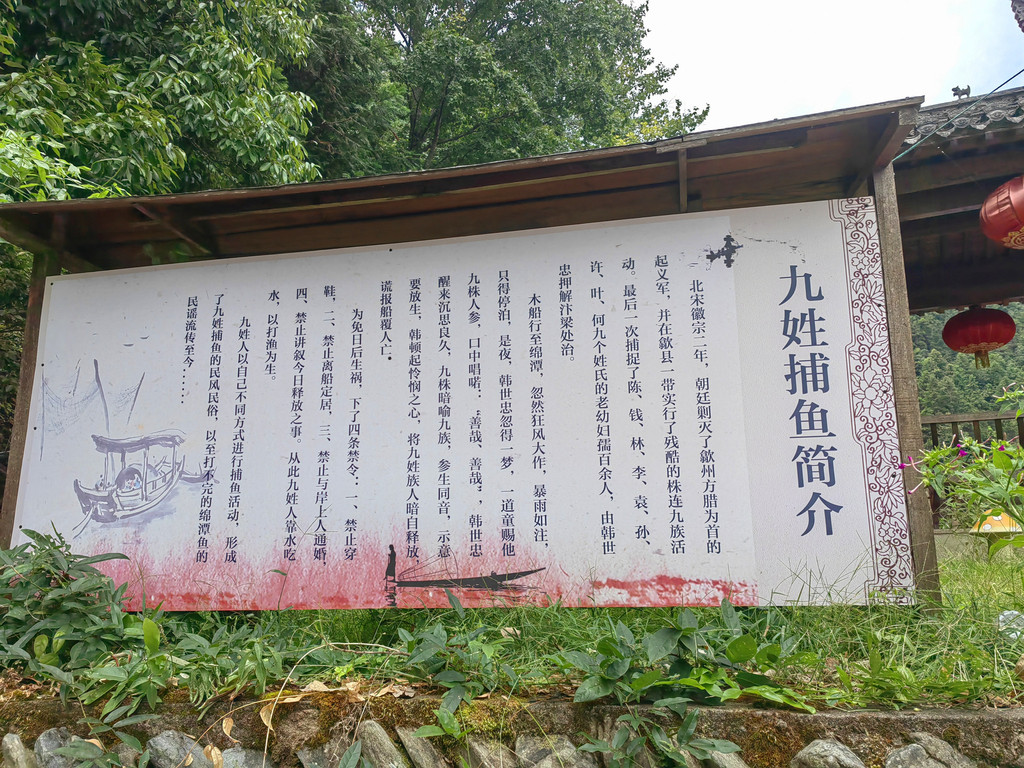 九姓捕鱼简介
北宋徽宗二年，朝廷剿灭了歙州方腊为首的
起义军，并在歙县一带实行了残酷的株连九族活
动。最后一次捕捉了陈、钱、林、李、袁、孙、
许、叶、何九个姓氏的老幼妇孺百余人，由韩世
忠押解汴梁处治。
木船行至绵潭，忽然狂风大作，暴雨如注，
只得停泊，是夜，韩世忠忽得一梦，一道童赐他
九株人参，口中唱喏：“善哉、善哉”，韩世忠
醒来沉思良久，九株暗喻九族，参生同音，示意
要放生，韩顿起怜悯之心，将九姓族人暗自释放
谎报船覆人亡。
为免日后生祸，下了四条禁令：一、禁止穿
鞋，二、禁止离船定居，三、禁止与岸上人通婚，
四、禁止讲叙今日释放之事。从此九姓人靠水吃
水，以打渔为生。
九姓人以自己不同方式进行捕鱼活动，形成
了九姓捕鱼的民风民俗，以至打不完的绵潭鱼的
民谣流传至今……